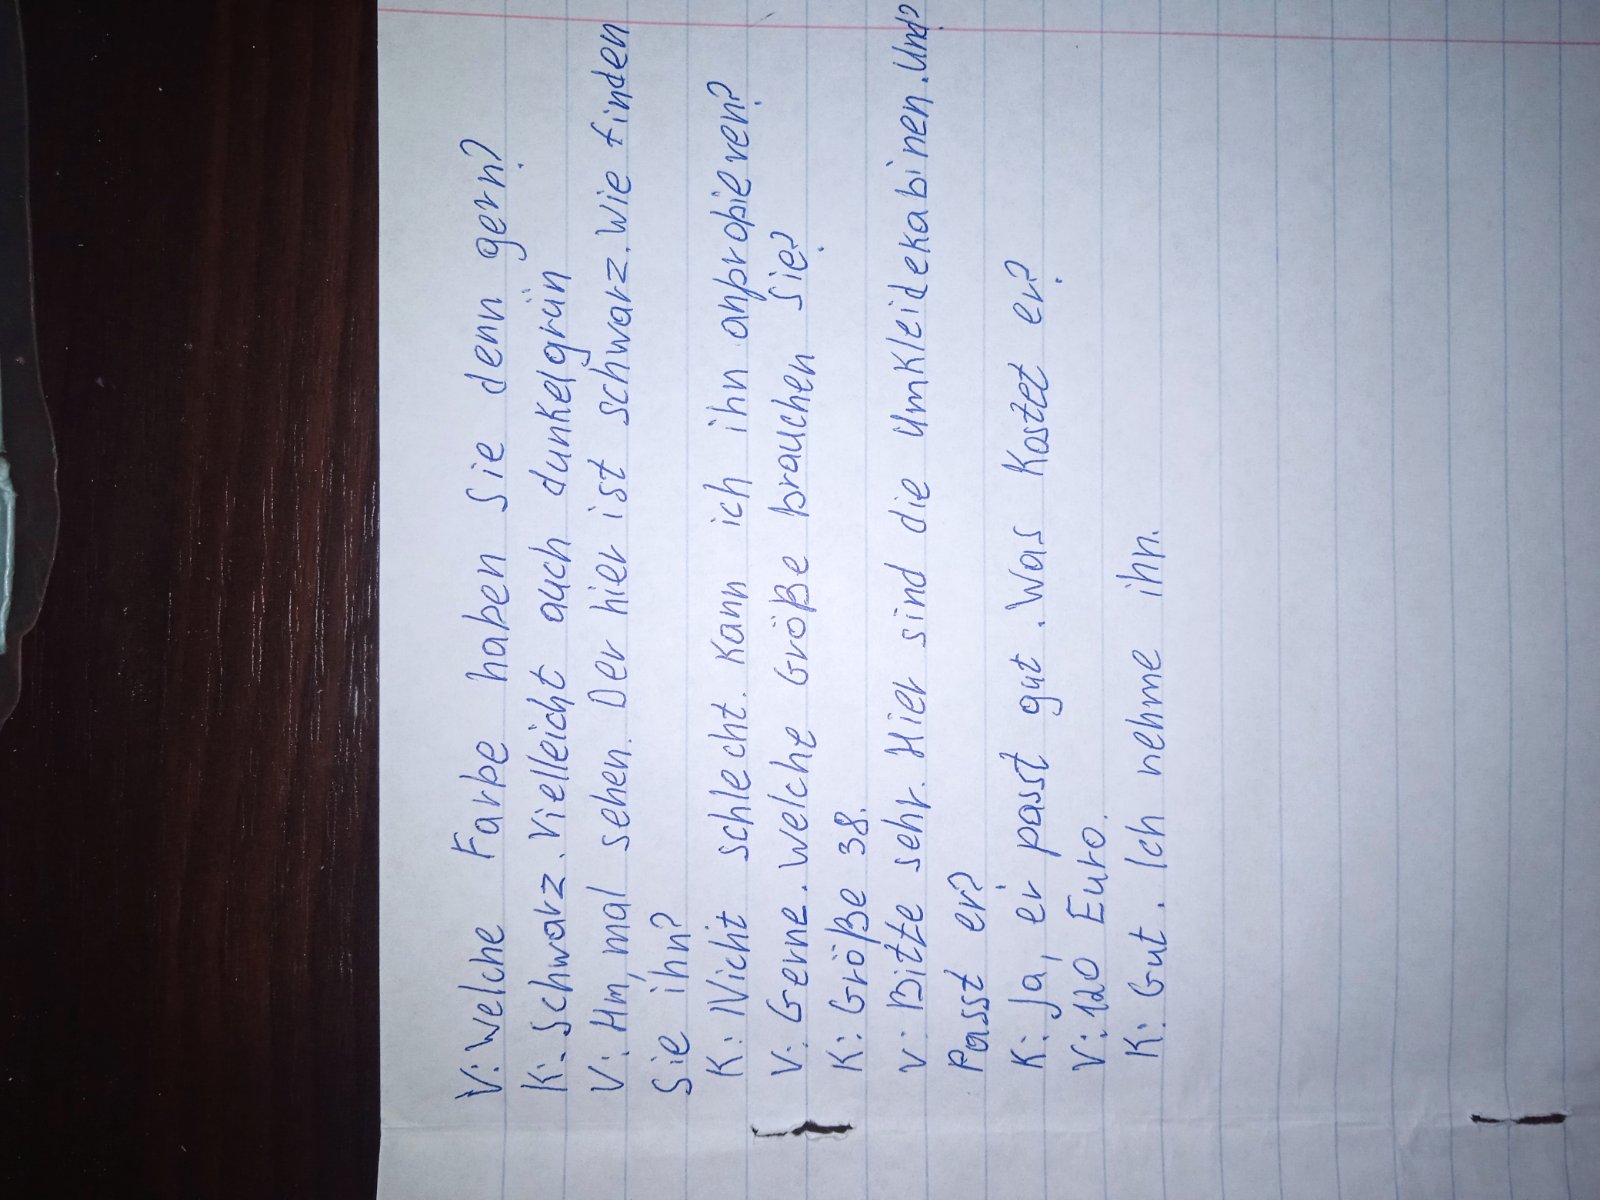 V: Welche Farbe haben Sie denn gern?
K: Schwarz. Vielleicht auch dunkelgrün
V: Hm, mal sehen. Der hier ist schwarz. Wie finden
Sie ihn?
K: Nicht schlecht. Kann ich ihn anprobieren?
V: Gerne. Welche Größe brauchen Sie?
K: Größe 38.
V: Bitte sehr. Hier sind die Umkleidekabinen. Und?
Passt er?
K: Ja, er passt gut. Was kostet er?
V: 120 Euro.
K: Gut. Ich nehme ihn.